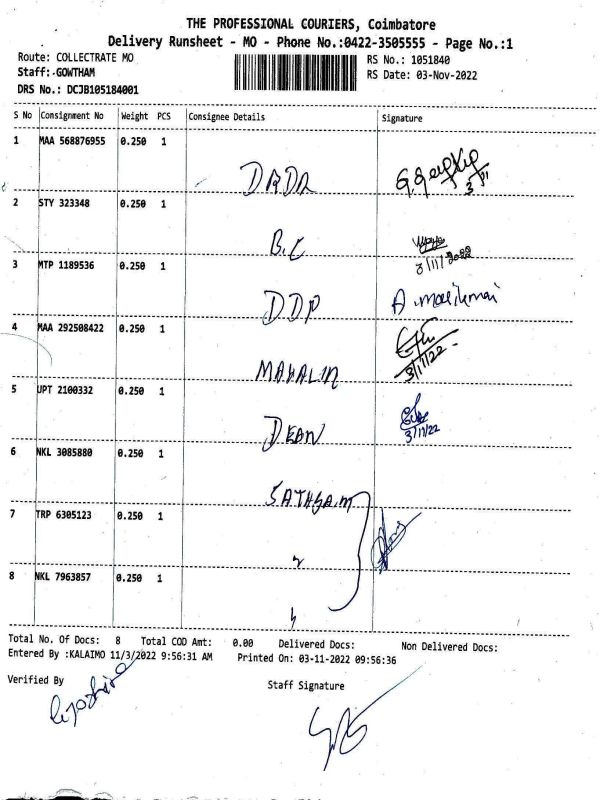 THE PROFESSIONAL COURIERS, Coimbatore
Delivery Runsheet - MO - Phone No.:0422-3505555 - Page No.:1
Route: COLLECTRATE MO RS No.: 1051840
Staff: GOWTHAM RS Date: 03-Nov-2022
DRS No.: DCJB105184001
S No Consignment No Weight PCS Consignee Details Signature
1 MAA 568876955 0.250 1
DRDA
2 STY 323348 0.250 1
B.C 3/11/2022
3 MTP 1189536 0.250 1
DDP
4 MAA 292508422 0.250 1
MAHALIR 3/11/22
5 UPT 2100332 0.250 1
DEAN 3/11/22
6 NKL 3085880 0.250 1
7 TRP 6305123 0.250 1
8 NKL 7963857 0.250 1
Total No. Of Docs: 8 Total COD Amt: 0.00 Delivered Docs: Non Delivered Docs:
Entered By :KALAIMO 11/3/2022 9:56:31 AM Printed On: 03-11-2022 09:56:36
Verified By Staff Signature